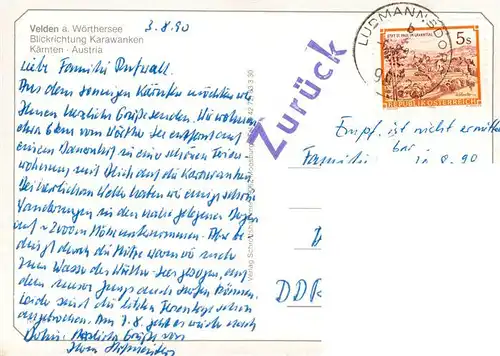 Velden a. Wörthersee
Blickrichtung Karawanken
Kärnten - Austria
3.8.90
Liebe Familie
Aus dem sonnigen Kärnten möchten wir
Ihnen herzliche Grüße senden. Wir wohnen
etwa 8 km vom Wörther See entfernt auf
einem Bauernhof in einer schönen Ferien
wohnung mit Blick auf die Karawanken.
Bei herrlichem Wetter haben wir einige schöne
Wanderungen in den nahe gelegenen Bergen
auf ~ 2000m Höhe unternommen. Aber be
dingt durch die Hitze waren wir auch
zum Wasser des Wörther Sees gezogen, auf
dem unser Jungs auch surfen können.
Leider sind die letzten Ferientage schon
angebrochen. Am 7.8. geht es wieder nach
Herzliche Grüße von
Ihre
Verlag
Zurück
LUDMANNSDORF
STIFT ST. PAUL IM LAVANTTAL
5 S
REPUBLIK ÖSTERREICH
Empf. ist nicht ermittel
bar.
Familie
8.90
DDR